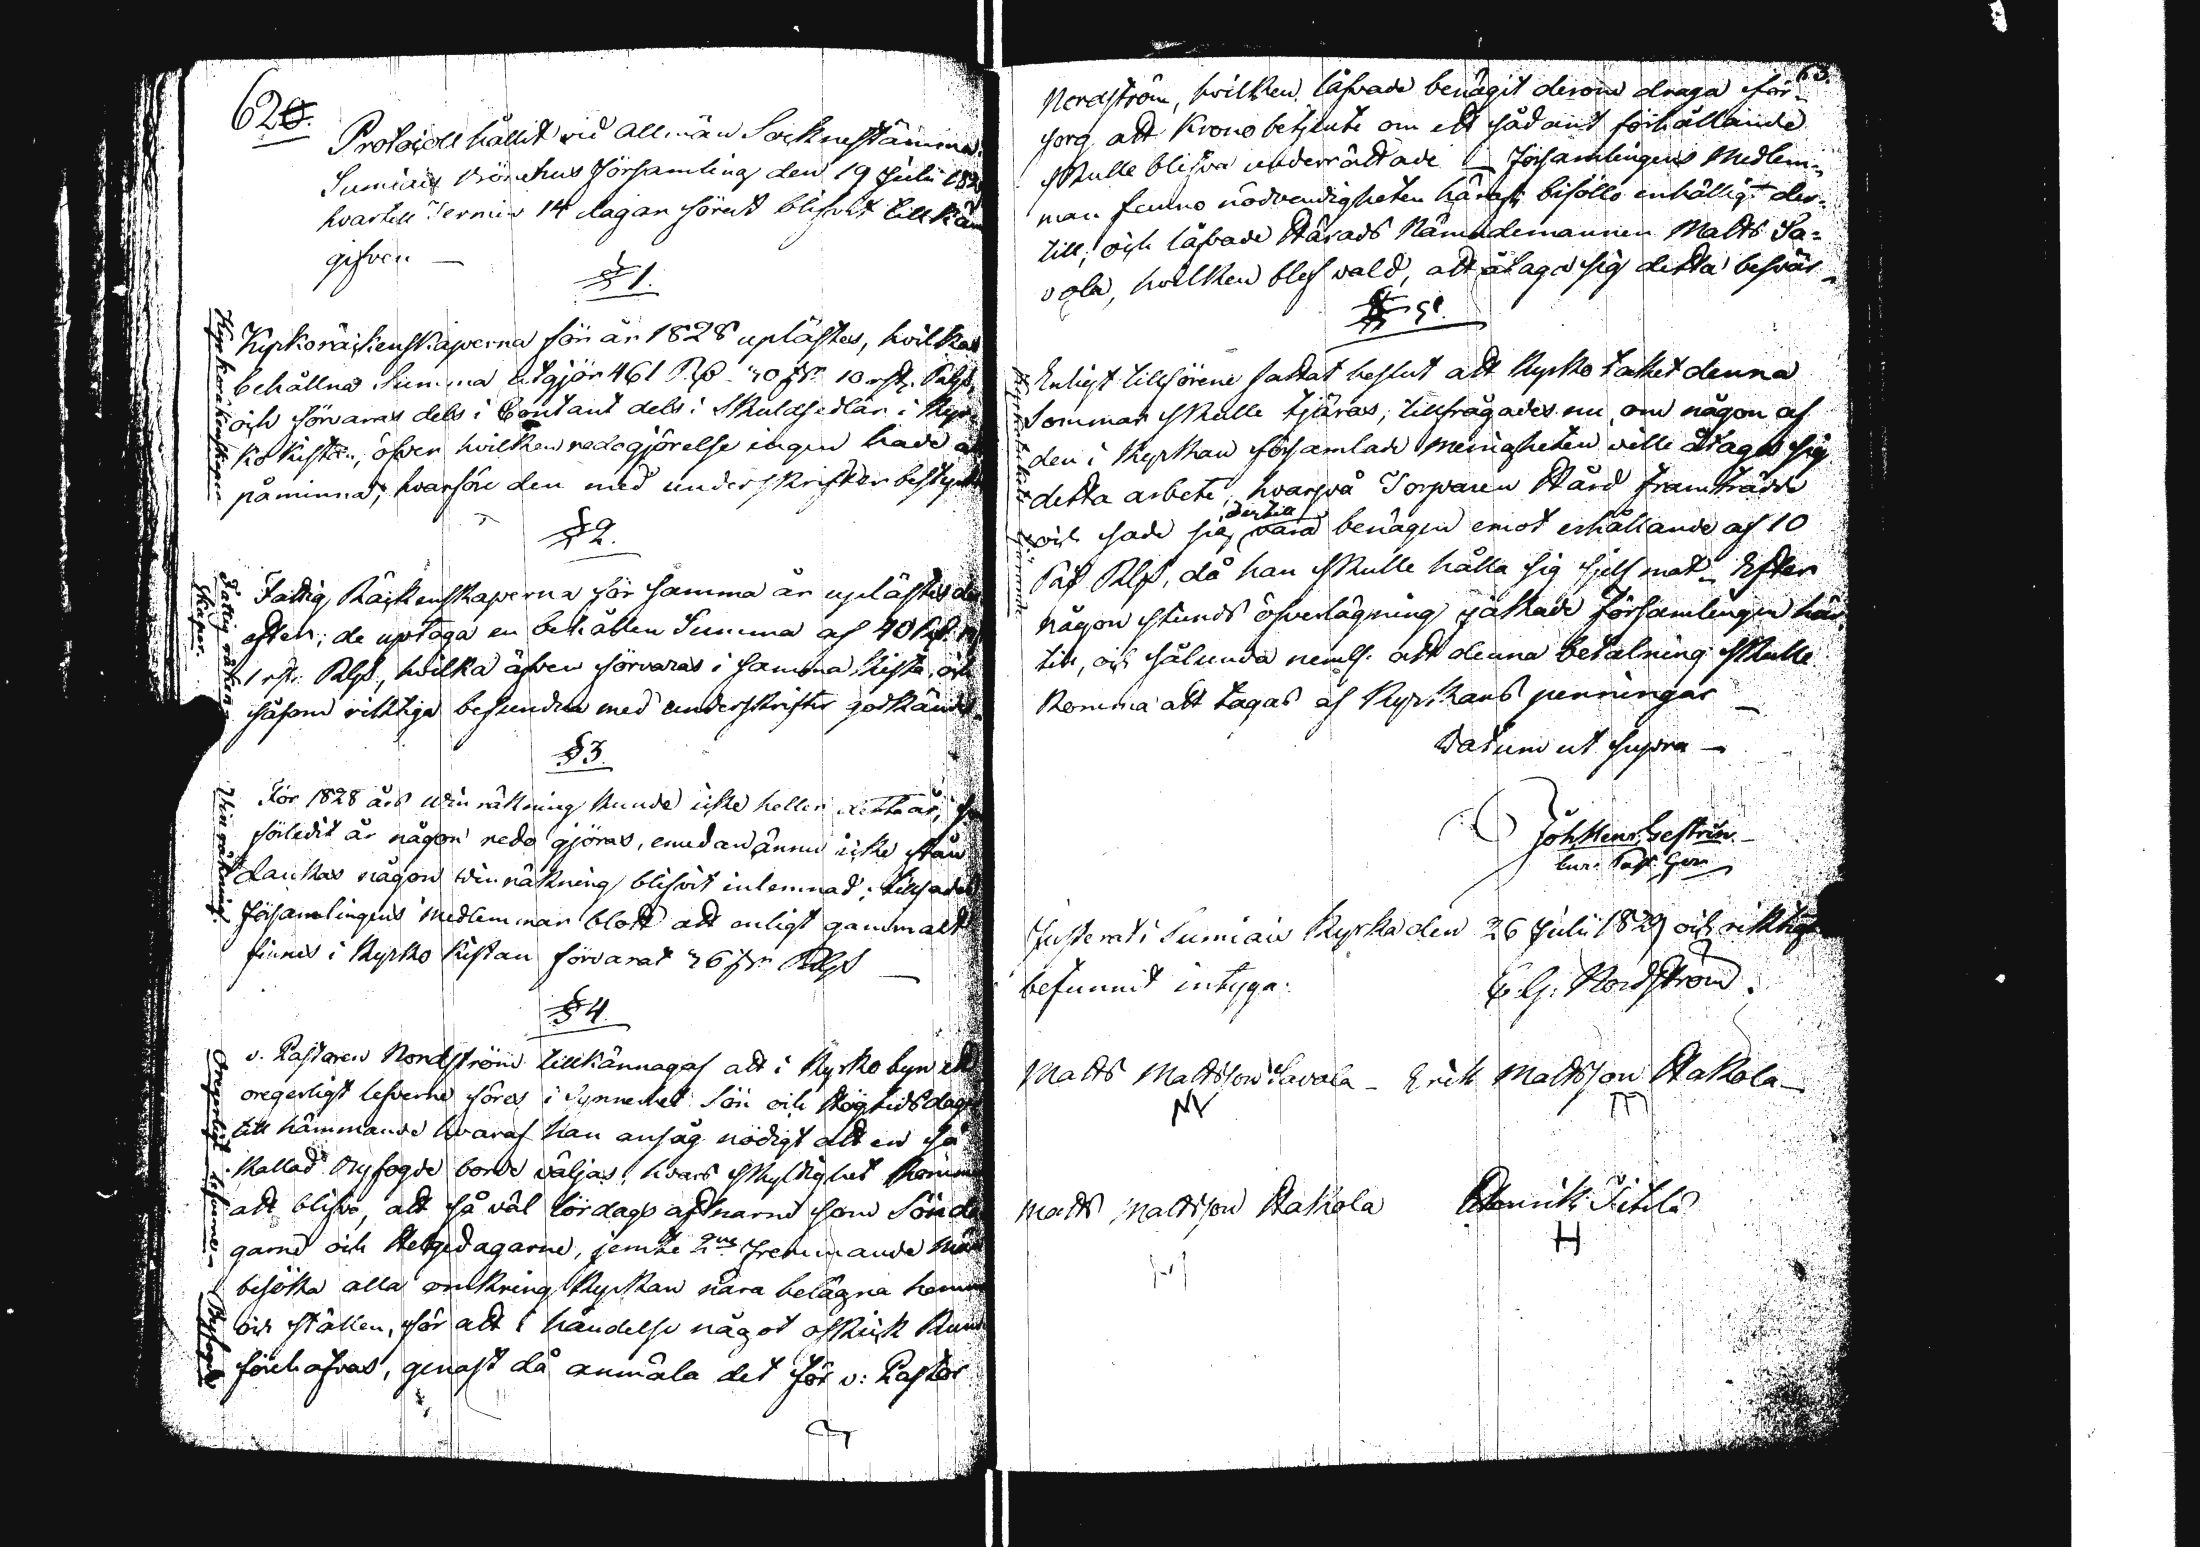 62
Protocoll hållit vid allmän Socknestämma
Sumiais Bönehus Församling den 19 Julii 182
hvartill Termin 14 dagar förut blifvit tillkän
gifven —
§ 1.
Kyrkoräkenskaper
Kyrkoräkenskaperna för år 1828 uplästes, hvilkas
behållna Summa utgjör 461 R 10
och förvaras dels i Contant dels i Skuldsedlar i Kyr-
kokistan, öfver hvilken redogjörelse ingen hade at
påminna, hvarföre den med underskrifter bestyrkt
§ 2.
Fattig räken-
skaper.
Fattig Räkenskaperna för samma år uplästes der
efter; de uptoga en behållen Summa af 40
1 rf. Rgs, hvilka äfven förvaras i samma kista, och
såsom riktiga befundna med underskrifter godkändes
§ 3.
Vin räkning.
För 1828 års Win räkning kunde icke heller detta år,
förledit år någon redo gjöras, emedan ännu icke från
Laukas någon win räkning blifvit inlemnad; tillsades
Församlingens medlemmar blott att enligt gammalt
finnes i Kyrko kistan förvarat 26
§ 4.
Oregerligt lefverne — Byfogde
v. Pastoren Nordström tillkännagaf att i Kyrko byn ett
oregerligt lefverne föres i synnerhet Sön och Högtidsdagar
till hämmande hvaraf han ansåg nödigt att en så
kallad Byfogde borde väljas, hvars skyldighet komme
att blifva, att så väl lördags aftnarne som Sönda
garne och Helgedagarne, jemte 2ne fremmande män
besöka alla omkring Kyrkan nära belägna hemm
och ställen, för att i händelse något oskick kund
förehafvas, genast då anmäla det för v: Pastor
63.
Nordström, hvilken låfvade benägit derom draga för-
sorg att Kronobetjente om ett sådant förhållande
skulle blifva underrättade — Församlingens Medlem-
mar funno nödvendigheten häraf, biföllo enhälligt der-
till, och låfvade Härads Nämndemannen Matts Sa-
vola, hvilken blef vald, att åtaga sig detta besvär.
§ 5.
Enligt tillförene fattat beslut att Kyrko taket denna
Sommar skulle tjäras, tillfrågades nu, om någon af
den i Kyrkan församlade menigheten ville åtaga sig
detta arbete, hvarpå Torparen Hård framträdde
dertill
och sade sig vara benägen emot erhållande af 10
R Rgs, då han skulle hålla sig sjelf mat — Efter
någon stunds öfverlägning jakade Församlingen här
till, och sålunda neml. att denna betalning skulle
komma att tagas af Kyrkans penningar —
Datum ut supra —
Joh. Henr. Gestrin.
Justerat i Sumiais Kyrka den 26 Julii 1829 och riktigt
befunnit intyga.
C. G. Nordström.
Matts Mattsson Savola — Erik Mattsson Hakola —
Matts Mattsson Hakola Henrik Titilä
H